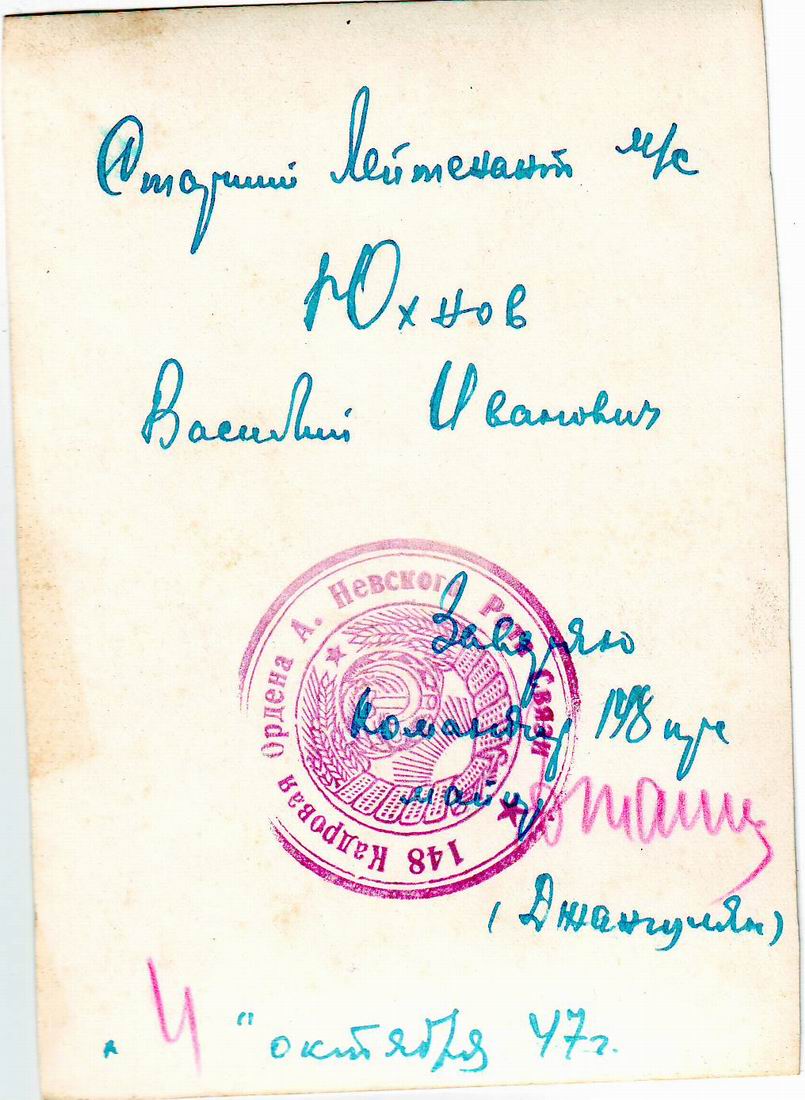 Старший Лейтенант м/с
Юхнов
Василий Иванович
148 Кадровая Ордена А. Невского Рота Связи
Заверяю
Командир 148
майор
(Джангулян)
"4" октября 47г.